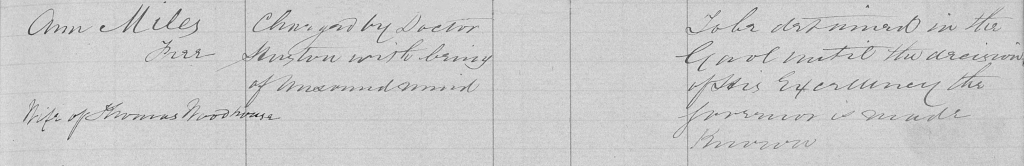 Ann Miles
Free
Wife of Thomas Woodhouse
Charged by Doctor
Huston with being
of unsound mind
To be detained in the
Gaol until the decision
of His Excellency the
Governor is made
Known